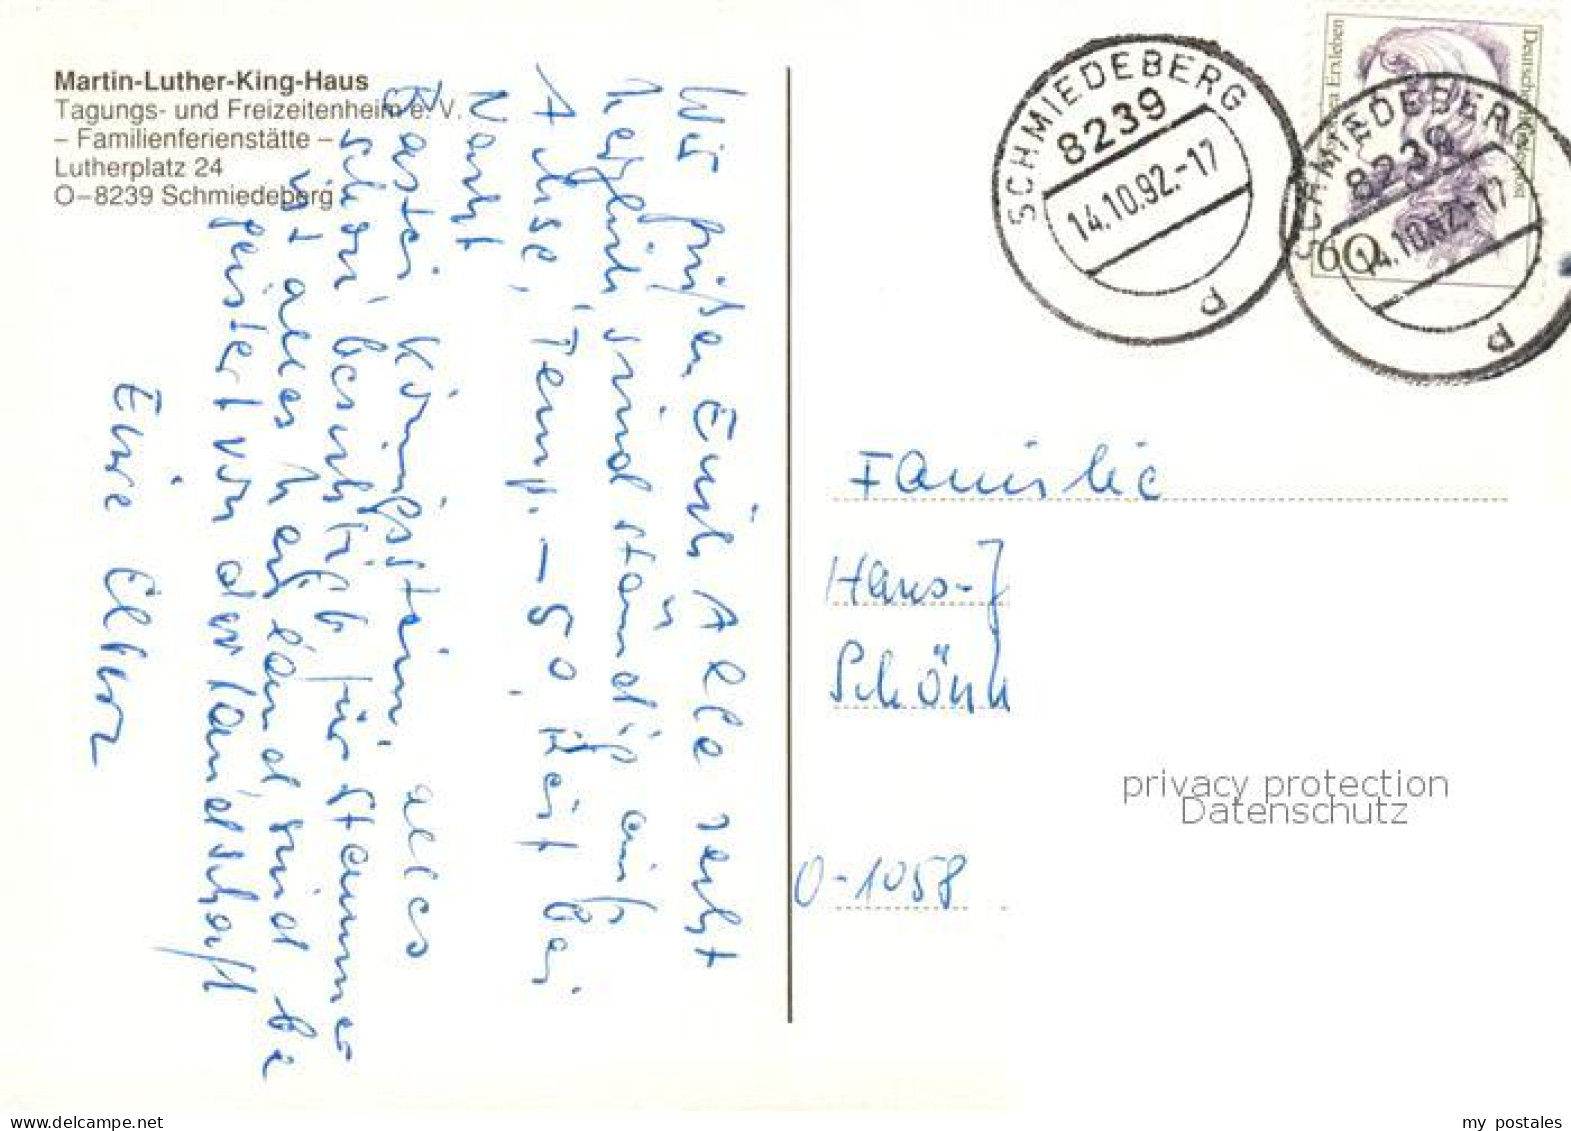 Martin-Luther-King-Haus
Tagungs- und Freizeitenheim e. V.
– Familienferienstätte –
Lutherplatz 24
O–8239 Schmiedeberg
Wir grüßen Euch Alle recht
herzlich, sind ständig auf
Achse, Temp. – 5°,
Nacht
Bastei, Königstein, alles
schon besichtigt, für
ist alles
geistert von der Landschaft
Eure Eltern
SCHMIEDEBERG
8239
14.10.92.-17
d
SCHMIEDEBERG
8239
14.10.92.-17
d
Erxleben
Deutsche Bundespost
60
Familie
Hans-J
Schönn
O-1058
privacy protection
Datenschutz
www.delcampe.net
my_postales